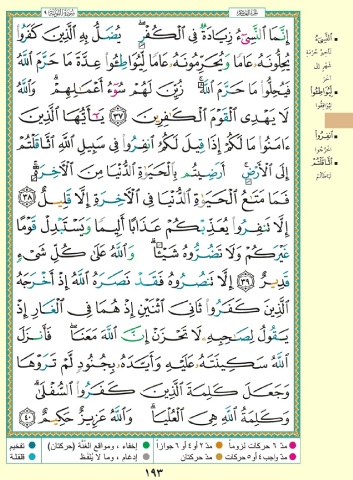 الجزء العاشر
سورة التوبة ٩
إِنَّمَا ٱلنَّسِىٓءُ زِيَادَةٌ فِى ٱلْكُفْرِ ۖ يُضَلُّ بِهِ ٱلَّذِينَ كَفَرُوا۟
يُحِلُّونَهُۥ عَامًا وَيُحَرِّمُونَهُۥ عَامًا لِّيُوَاطِـُٔوا۟ عِدَّةَ مَا حَرَّمَ ٱللَّهُ
فَيُحِلُّوا۟ مَا حَرَّمَ ٱللَّهُ ۚ زُيِّنَ لَهُمْ سُوٓءُ أَعْمَـٰلِهِمْ ۗ وَٱللَّهُ
لَا يَهْدِى ٱلْقَوْمَ ٱلْكَـٰفِرِينَ ٣٧ يَـٰٓأَيُّهَا ٱلَّذِينَ
ءَامَنُوا۟ مَا لَكُمْ إِذَا قِيلَ لَكُمُ ٱنفِرُوا۟ فِى سَبِيلِ ٱللَّهِ ٱثَّاقَلْتُمْ
إِلَى ٱلْأَرْضِ ۚ أَرَضِيتُم بِٱلْحَيَوٰةِ ٱلدُّنْيَا مِنَ ٱلْـَٔاخِرَةِ ۚ
فَمَا مَتَـٰعُ ٱلْحَيَوٰةِ ٱلدُّنْيَا فِى ٱلْـَٔاخِرَةِ إِلَّا قَلِيلٌ ٣٨
إِلَّا تَنفِرُوا۟ يُعَذِّبْكُمْ عَذَابًا أَلِيمًا وَيَسْتَبْدِلْ قَوْمًا
غَيْرَكُمْ وَلَا تَضُرُّوهُ شَيْـًٔا ۗ وَٱللَّهُ عَلَىٰ كُلِّ شَىْءٍ
قَدِيرٌ ٣٩ إِلَّا تَنصُرُوهُ فَقَدْ نَصَرَهُ ٱللَّهُ إِذْ أَخْرَجَهُ
ٱلَّذِينَ كَفَرُوا۟ ثَانِىَ ٱثْنَيْنِ إِذْ هُمَا فِى ٱلْغَارِ إِذْ
يَقُولُ لِصَـٰحِبِهِۦ لَا تَحْزَنْ إِنَّ ٱللَّهَ مَعَنَا ۖ فَأَنزَلَ
ٱللَّهُ سَكِينَتَهُۥ عَلَيْهِ وَأَيَّدَهُۥ بِجُنُودٍ لَّمْ تَرَوْهَا
وَجَعَلَ كَلِمَةَ ٱلَّذِينَ كَفَرُوا۟ ٱلسُّفْلَىٰ ۗ
وَكَلِمَةُ ٱللَّهِ هِىَ ٱلْعُلْيَا ۗ وَٱللَّهُ عَزِيزٌ حَكِيمٌ ٤٠
النسيء
ليواطئوا
انفروا
اثاقلتم
مدّ ٦ حركات لزوماً
مدّ ٢ أو ٤ أو ٦ جوازاً
مدّ واجب ٤ أو ٥ حركات
مدّ حركتان
إخفاء، ومواقع الغُنَّة (حركتان)
إدغام، وما لا يُلفَظ
تفخيم
قلقلة
١٩٣